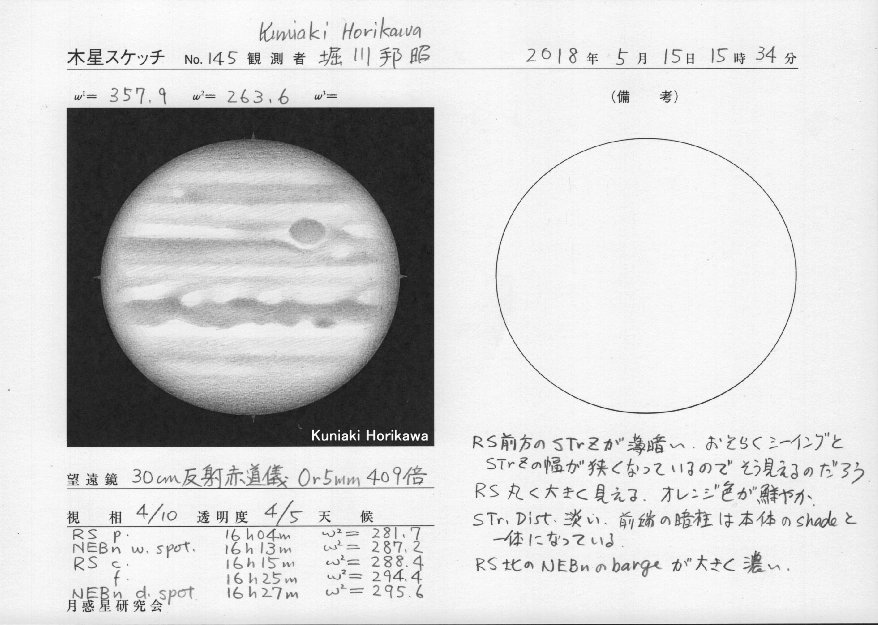 Kuniaki Horikawa
木星スケッチ No. 145 観測者 堀川邦昭
2018年 5月 15日 15時 34分
ω¹= 357.9 ω²= 263.6 ω³=
(備 考)
Kuniaki Horikawa
望遠鏡 30cm反射赤道儀 Or5mm 409倍
視 相 4/10 透明度 4/5 天 候
RS p. 16h04m ω²= 281.7
NEBn w. spot. 16h13m ω²= 287.2
RS c. 16h15m ω²= 288.4
f. 16h25m ω²= 294.4
NEBn d. spot 16h27m ω²= 295.6
月惑星研究会
RS前方のSTrZが薄暗い. おそらくシーイングと
STrZの幅が狭くなっているのでそう見えるのだろう
RS 丸く大きく見える. オレンジ色が鮮やか.
STr. Dist. 淡い. 前端の暗柱は本体のshadeと
一体になっている.
RS北のNEBnのbargeが大きく濃い.